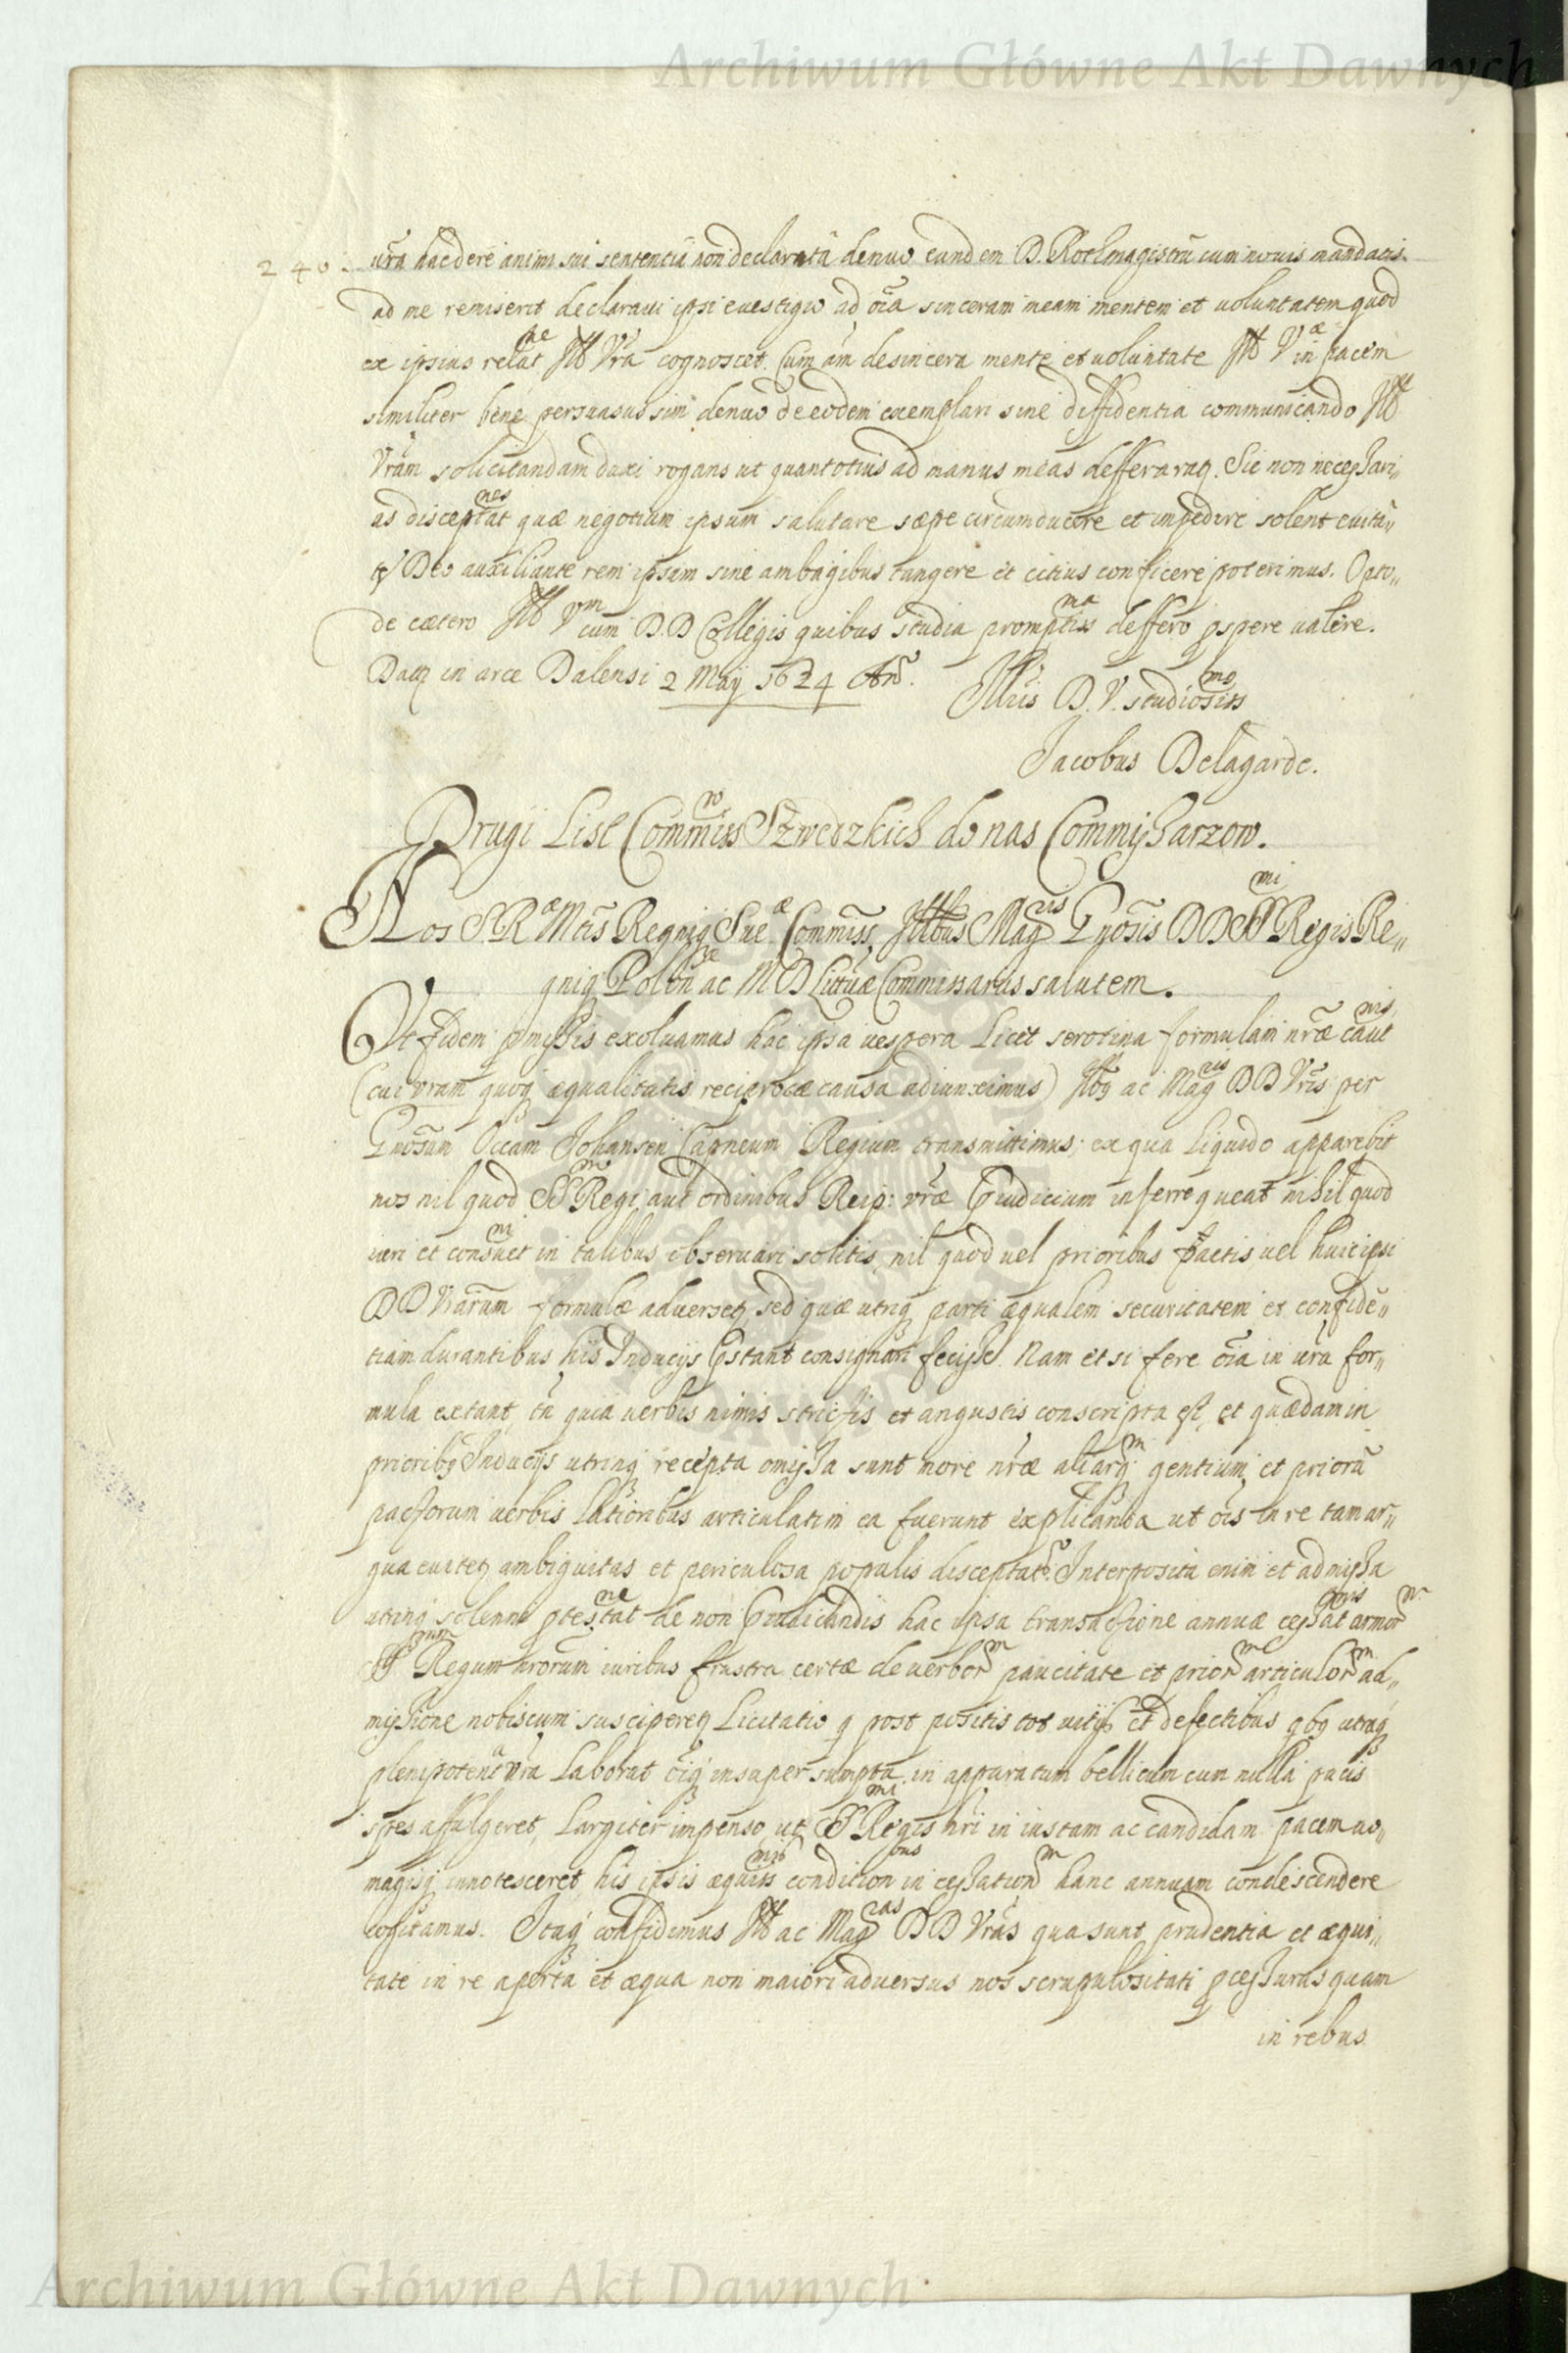 Archiwum Główne Akt Dawnych
240.
ura hac de re animi sui sententiã non declaratã denuo eundem D. Rotlmagistrũ cum novis mandatis
ad me remiserit declaraui ipsi euestigio ad oĩa sinceram meam mentem et uoluntatem quod
ex ipsius relatne Illt Vrã cognoscet. Cum ãm de sincera mente et uoluntate Ill Væ in pacem
similiter bene persuasus sim denuo de eodem exemplari sine diffidentia communicando Ill
Vrãm solicitandam duxi rogans ut quantotius ad manus meas defferaratq. Sic non necessari„
as disceptatnes quæ negotium ipsum salutare sæpe circumducere et impedire solent euitã„
Deo auxiliante rem ipsam sine ambagibus tangere et citius conficere poterimus. Opto„
de cætero Ill Vm cum D.D Collegis quibus studia promptissma deffero pspere ualere.
Datq in arce Dalensi 2 Maij 1624 Ano.
Illris D. V. studiosissmo
Jacobus Delagarde.
Drugi List Commissrow Szwedzkich do nas Commissarzow.
Nos S Ræ Mtis Regniq Sueæ Commiss, Illbus Magcis Gnosis D D Smi Regis Re„
gniq Polonæ ac M D Littuæ Commissariis salutem.
Ut fidem pmissis exoluamus hac ipsa uespera Licet serotina formulam nræ cautnis
(cui vram quoq æqualitatis reciprocæ causa adiunximus) Illbq ac Magcis D D Vris per
Gnosum Occam Johansen Capneum Regium transmittimus; ex qua liquido apparebit
nos nil quod Smo Regi aut ordinibus Reip: vræ pjudicium inferre queat nihil quod
iuri et consuetni in talibus obseruari solitis, nil quod uel prioribus pactis uel huic ipsi
D D Vrarum formulæ aduersetq sed quæ utriq parti æqualem securitatem et confidẽ„
tiam durantibus his Inducijs pstant consignari fecisse. Nam et si fere oĩa in ura for„
mula extant, tñ quia uerbis nimis strictis et angustis conscripta est, et quædam in
prioribq Inducijs utrinq recepta omissa sunt more nræ aliarq gentium et priorũ
pactorum uerbis latioribus articulatim ea fuerunt explicanda ut oĩs in re tam ar„
gua euitetq ambiguitas et periculosa populis disceptato. Interposita enim et admissa
utrinq solenni ptestatne de non pjudicandis hac ipsa transactione annuæ cessatonis armorm
S Regum nrorum iuribus frustra certæ de verborm paucitate et priorm articulorm ad„
missione nobiscum susciperetq Licitatio q post positis tot uitijs et defectibus qbq utraq
plenipotena vra laborat oĩq insuper sumptu in apparatum bellicum cum nulla pacis
spes affulgeret, largiter impenso, ut Smi Regis nri in iustam ac candidam pacem uo„
magisq innotesceret, his ipsis æquissmis conditionbus in cessationm hanc annuam condescendere
cogitamus. Itaq confidimus Ill ac Magcas D D Vras qua sunt prudentia et æqui„
tate in re aperta et æqua non maiori aduersus nos scrupulositati pcessuras quam
in rebus
Archiwum Główne Akt Dawnych